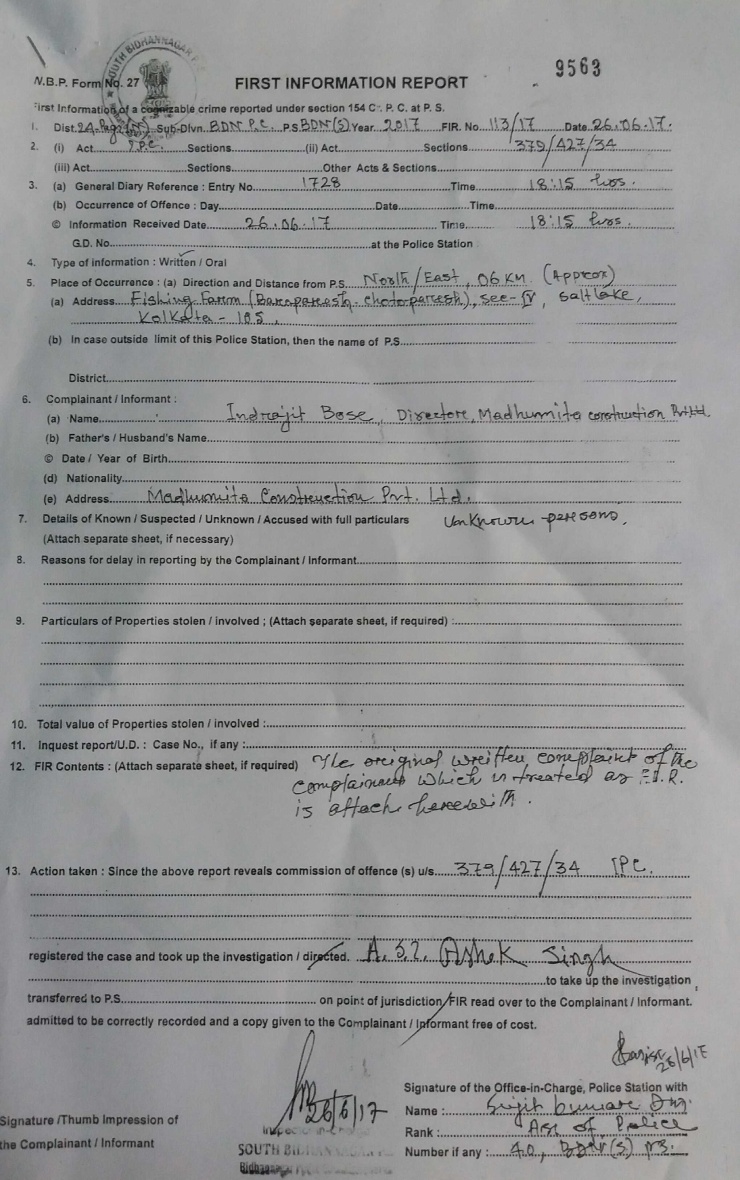 SOUTH BIDHANNAGAR
9563
W.B.P. Form No. 27
FIRST INFORMATION REPORT
First Information of a cognizable crime reported under section 154 Cr. P. C. at P. S.
1. Dist. 24-Pgs (N) Sub-Divn. BDN P.C. P.S BDN(S) Year 2017 FIR. No. 113/17 Date 26.06.17.
2. (i) Act I.P.C. Sections (ii) Act Sections 379/427/34
(iii) Act Sections Other Acts & Sections
3. (a) General Diary Reference : Entry No. 1728 Time 18:15 hrs.
(b) Occurrence of Offence : Day Date Time
© Information Received Date 26.06.17 Time 18:15 hrs.
G.D. No. at the Police Station
4. Type of information : Written / Oral
5. Place of Occurrence : (a) Direction and Distance from P.S. North/East, 06 KM. (Approx)
(a) Address Fishing Farm ( ), sec-IV, saltlake,
Kolkata - 105,
(b) In case outside limit of this Police Station, then the name of P.S.
District
6. Complainant / Informant :
(a) Name Indrajit Bose, Directore, Madhumita construction Pvt.ltd.
(b) Father's / Husband's Name
© Date / Year of Birth
(d) Nationality
(e) Address Madhumita Construction Pvt. Ltd.
7. Details of Known / Suspected / Unknown / Accused with full particulars Unknown persons.
(Attach separate sheet, if necessary)
8. Reasons for delay in reporting by the Complainant / Informant
9. Particulars of Properties stolen / involved ; (Attach separate sheet, if required) :
10. Total value of Properties stolen / involved :
11. Inquest report/U.D. : Case No., if any :
12. FIR Contents : (Attach separate sheet, if required) The original written complaint of the
complainant which is treated as F.I.R.
is attach herewith.
13. Action taken : Since the above report reveals commission of offence (s) u/s. 379/427/34 IPC.
registered the case and took up the investigation / directed. A.S.I. Ashok Singh
to take up the investigation
transferred to P.S. on point of jurisdiction/FIR read over to the Complainant / Informant.
admitted to be correctly recorded and a copy given to the Complainant / Informant free of cost.
26/6/17
26/6/17
Signature of the Office-in-Charge, Police Station with
Signature /Thumb Impression of
the Complainant / Informant
Name : Sujit kumar
Rank : ASI of Police
Number if any : BDN(S) P.S.
SOUTH